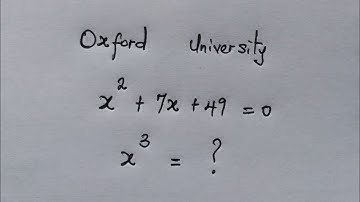 Oxford University
x² + 7x + 49 = 0
x³ = ?